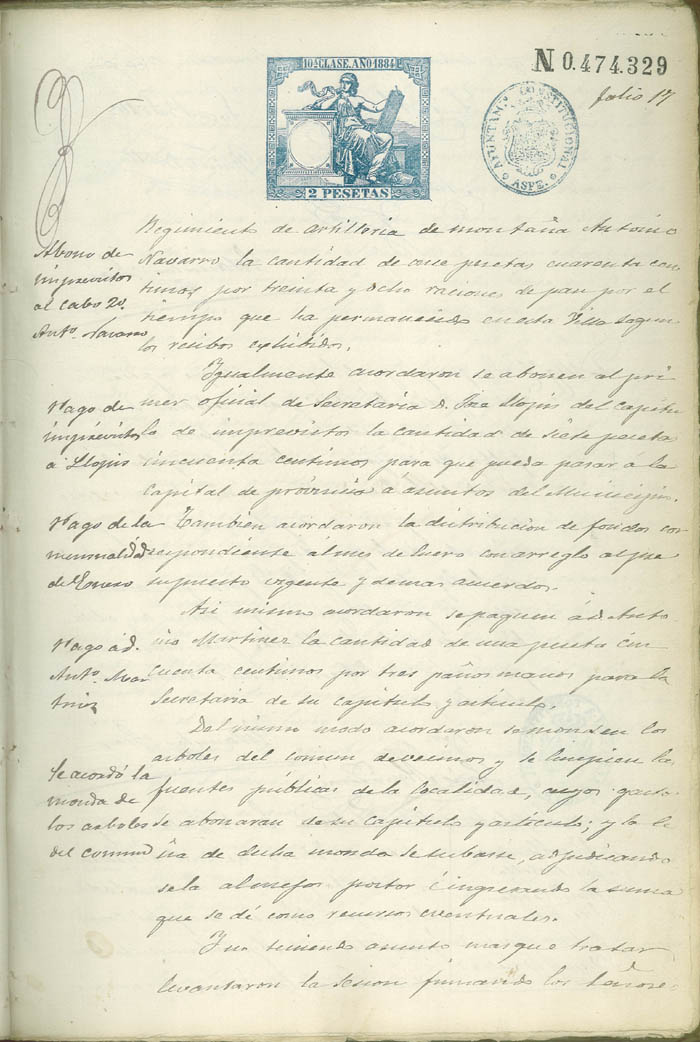 10ª CLASE. AÑO 1884
2 PESETAS
N. 0.474.329
folio 17
AYUNTAM.º CONSTITUCIONAL
ASPE.
Regimiento de artilleria de montaña Antonio
Navarro la cantidad de once pesetas cuarenta cen-
timos, por treinta y ocho raciones de pan por el
tiempo que ha permanecido en esta Villa segun
los recibos exhibidos.
Abono de
imprevistos
al cabo 2º
Antº. Navarro
Igualmente acordaron se abonen al pri
mer oficial de Secretaria D. Jose Llopis del capitu
lo de imprevistos la cantidad de siete pesetas
cincuenta centimos para que pueda pasar á la
capital de provincia a asuntos del Municipio.
Pago de
imprevistos
a Llopis
Tambien acordaron la distribucion de fondos cor
respondiente al mes de Enero con arreglo al pre
supuesto vigente y demas acuerdos.
Pago de la
mensualidad
de Enero
Asi mismo acordaron se paguen á D. Anto
nio Martinez la cantidad de una peseta cin
cuenta centimos por tres paños manos para la
Secretaria de su capitulo y articulo.
Pago á D.
Antº. Mar
tinez
Del mismo modo acordaron se monden los
arboles del comun de vecinos y se limpien las
fuentes públicas de la localidad, cuyos gastos
se abonaran de su capitulo y articulo; y la le
ña de dicha monda se subaste, adjudicando
sela al mejor postor é ingresando la suma
que se dé como recursos eventuales.
Se acordó la
monda de
los arboles
del comun
Y no teniendo asunto mas que tratar
levantaron la sesion firmando los Señore-